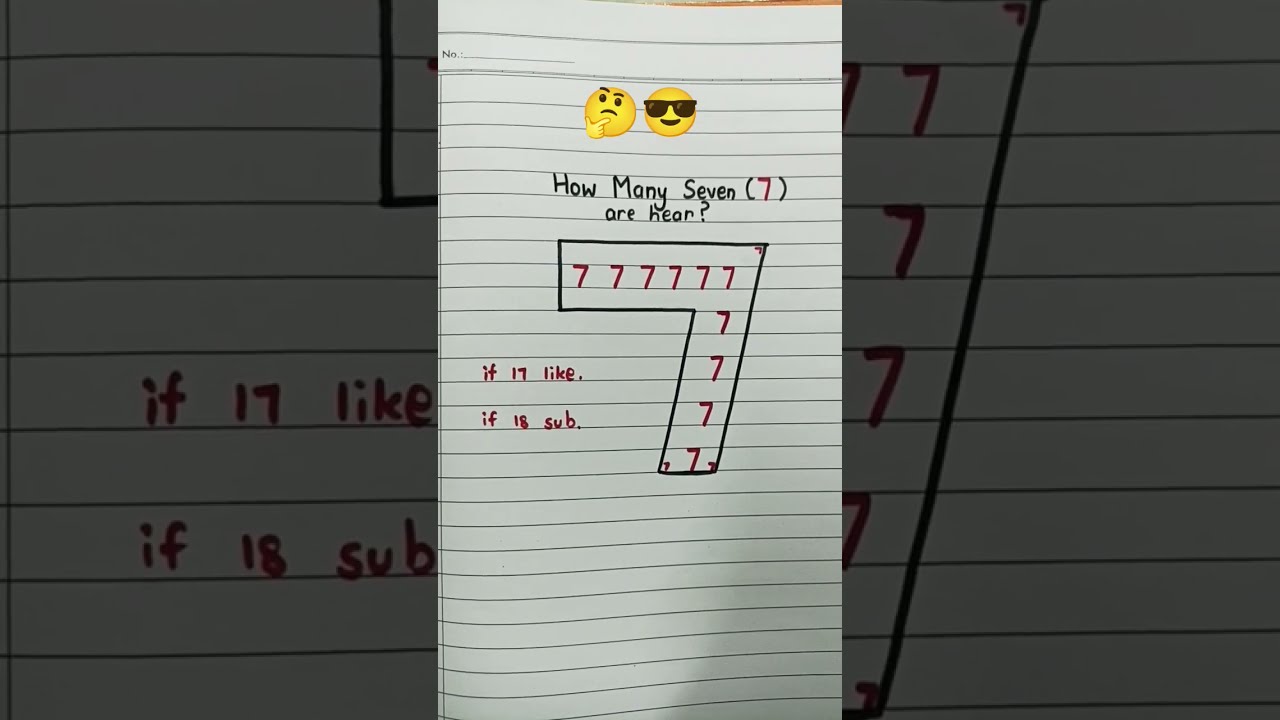 No.:
How Many Seven (7)
are hear?
7
7 7 7 7 7 7
7
if 17 like.
7
if 18 sub.
7
7 7 7